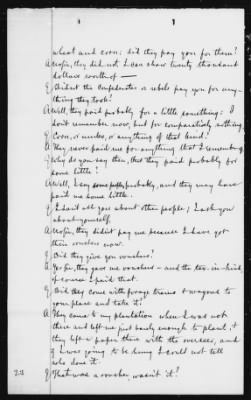 wheat and corn: did they pay you for them?
A. No sir, they did not. I can show twenty thousand
dollars worth of —
Q. Did not the Confederates or rebels pay you for any-
thing they took?
A. Well, they paid probably for a little something: I
don't remember now, but for comparatively nothing.
Q. Corn, or mules, or anything of that kind?
A. They never paid me for anything that I remember.
Q. Why do you say then, that they paid probably for
some little?
A. Well, I say probably, and they may have
paid me some little.
Q. I don't ask you about other people; I ask you
about yourself.
A. No sir, they didn't pay me because I have got
their vouchers now.
Q. Did they give you vouchers?
A. Yes sir, they gave me vouchers – and the tax-in-kind,
of course I paid that.
Q. Did they come with forage trains & wagons to
your place and take it?
A. They came to my plantation when I was not
there and left me just barely enough to plant, &
they left a paper there with the overseer, and
if I was going to be hung I could not tell
who done it.
Q. That was a voucher, wasn't it?